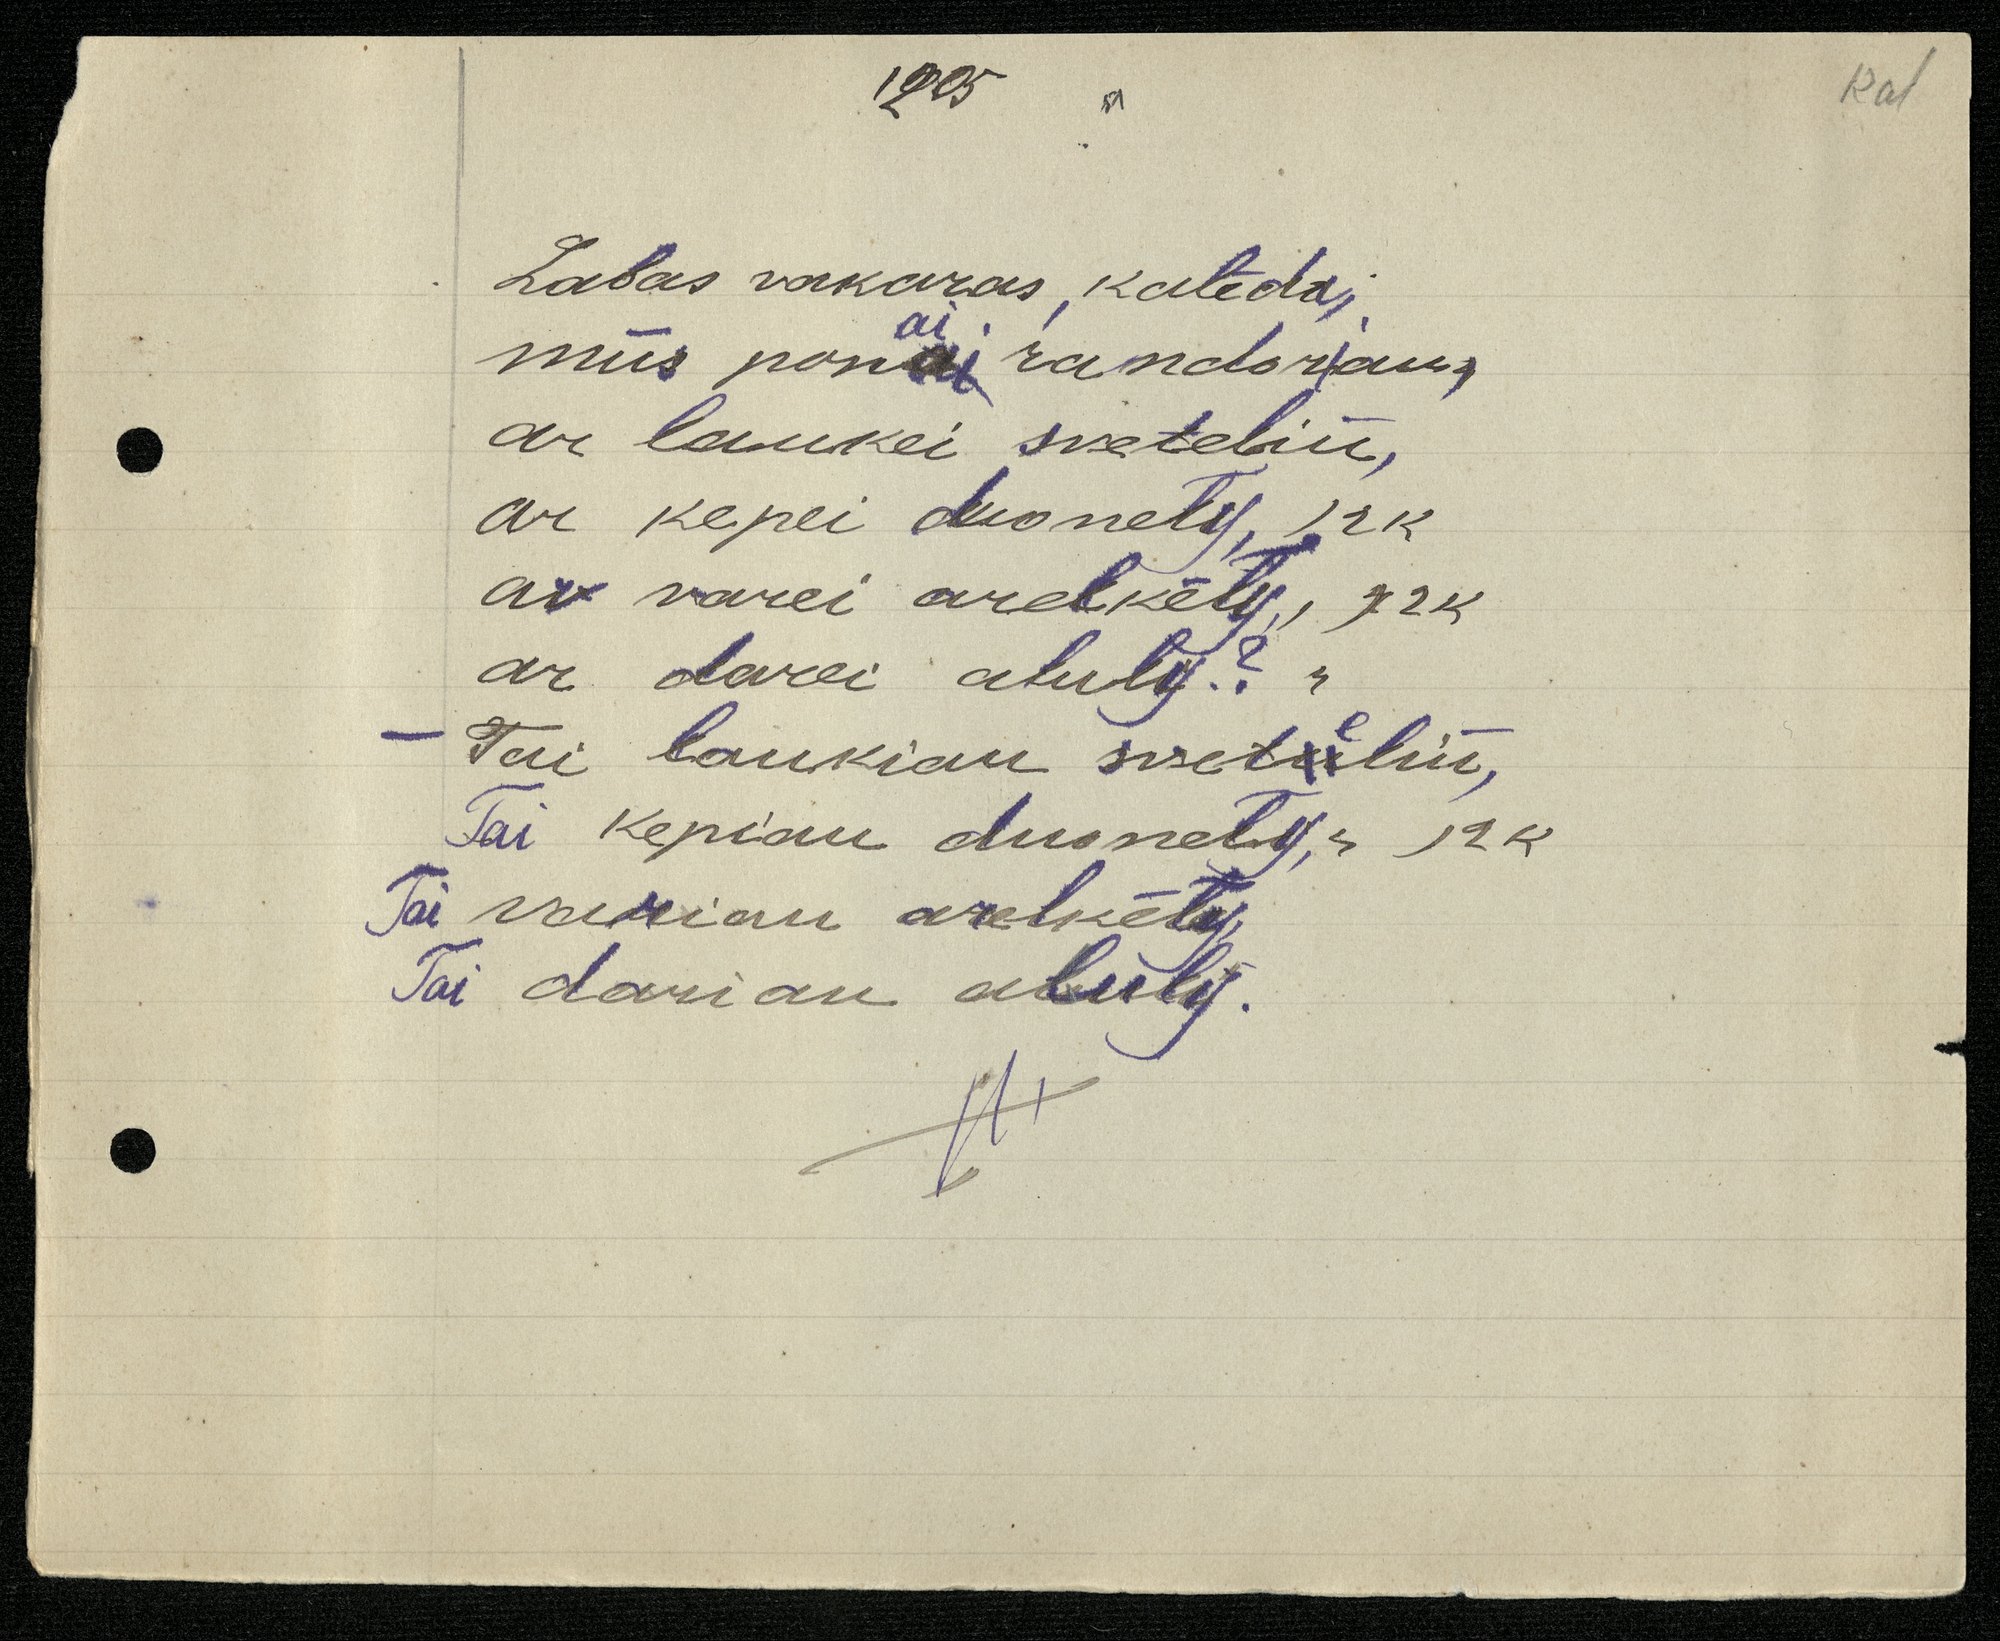 1205
Kal
Labas vakaras, kalėda,
mūs ponai randoriau,
ar laukei svetelių,
ar kepei duonely, 12K
ar varei arelkėly, 12K
ar darei alulỹ? "
– Tai laukiau svetelių,
Tai kepiau duonely, " 12K
Tai variau arelkėly,
Tai dariau alulỹ.